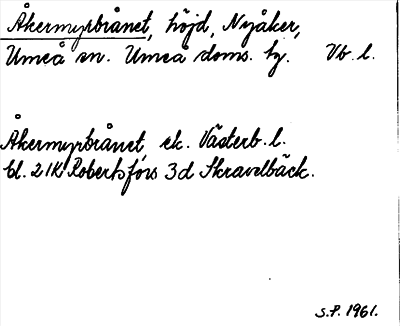 Åkermyrbrånet, höjd, Nyåker,
Umeå sn. Umeå doms. tg. Vb. l.
Åkermyrbrånet, ek. Västerb. l.
bl. 21K Robertsfors 3d Skravelbäck.
S.P. 1961.